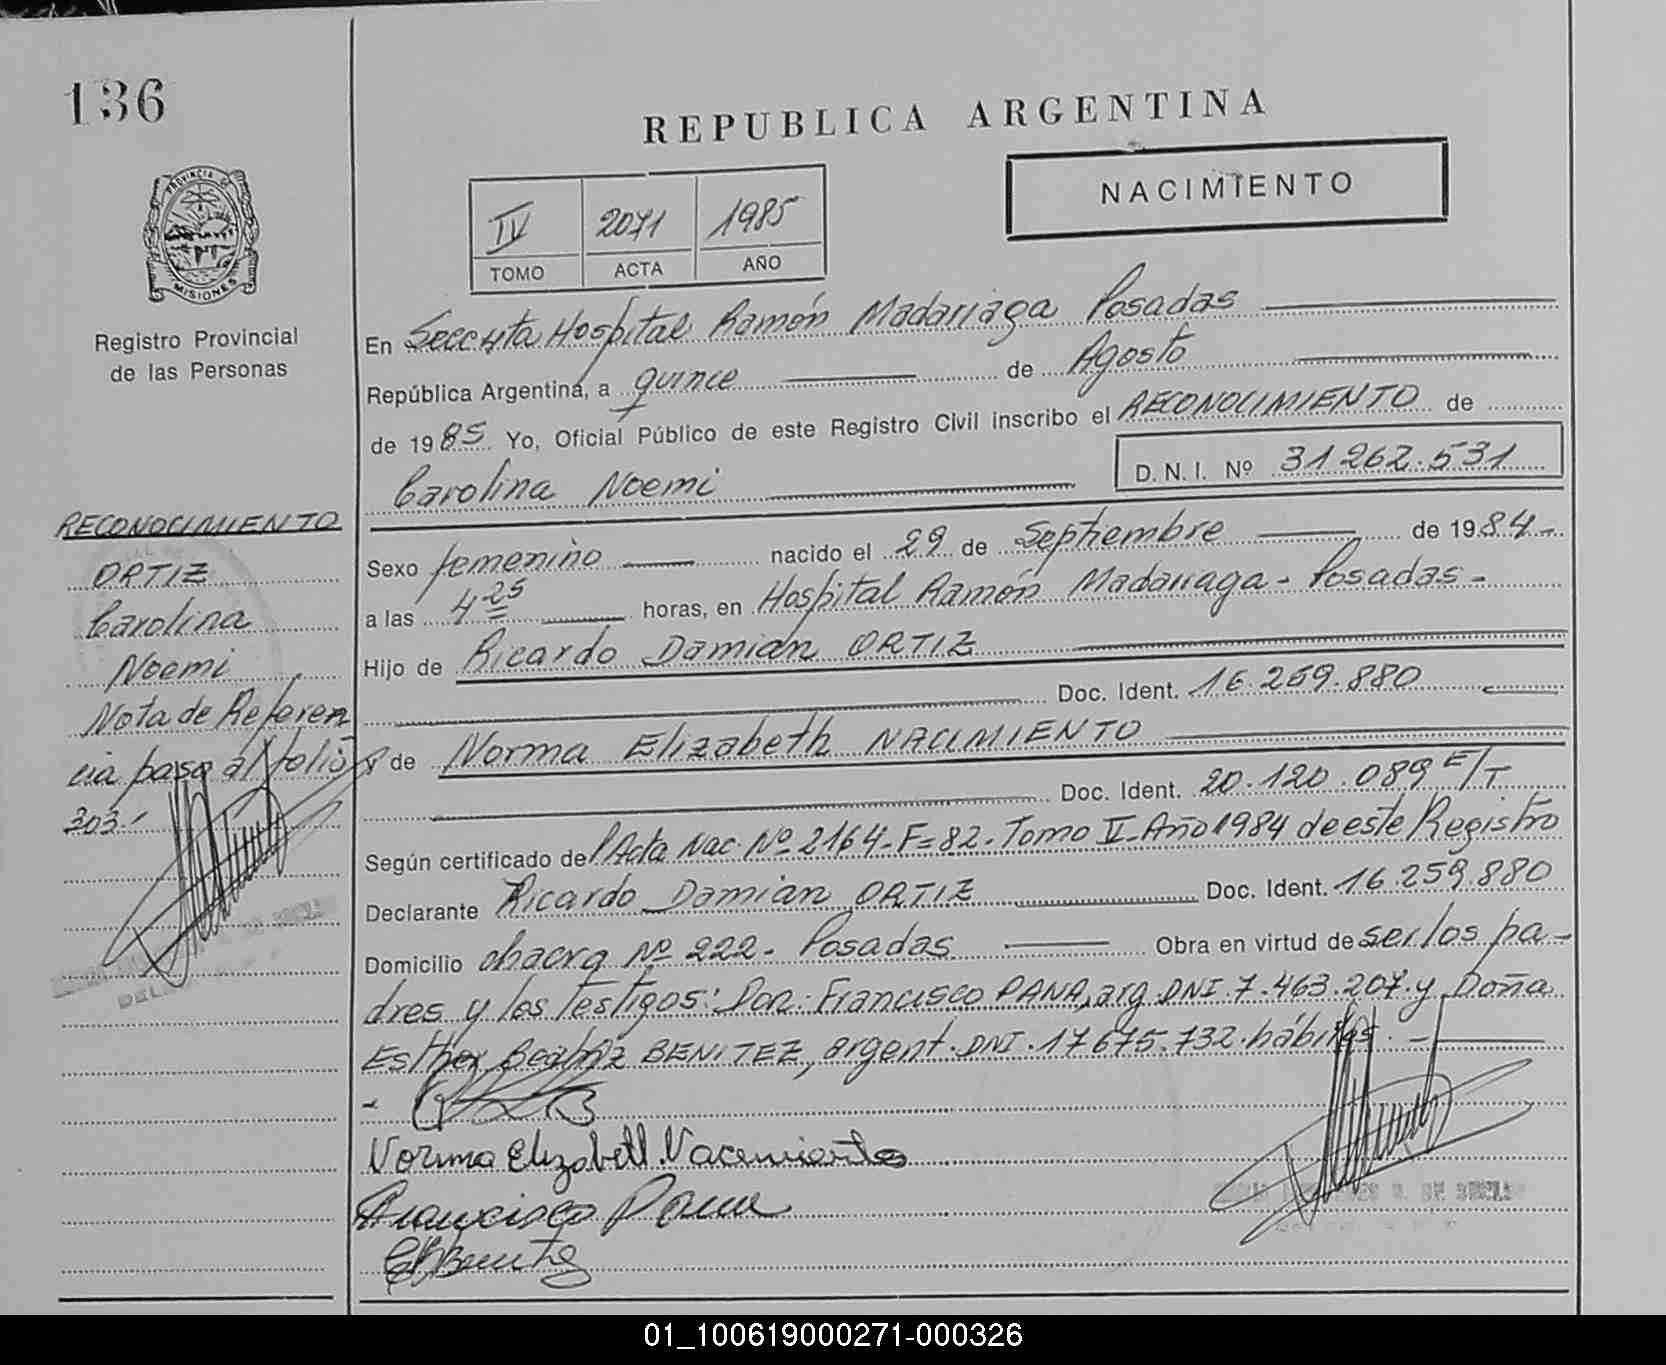 136
REPUBLICA ARGENTINA
NACIMIENTO
IV 2071 1985
TOMO ACTA AÑO
PROVINCIA DE
MISIONES
Registro Provincial
de las Personas
En Secc 4ta Hospital Ramón Madariaga Posadas
República Argentina, a quince de Agosto
de 1985. Yo, Oficial Público de este Registro Civil inscribo el RECONOCIMIENTO de
Carolina Noemi
D. N. I. Nº 31 262.531
RECONOCIMIENTO
ORTIZ
Carolina
Noemi
Nota de Referen
cia pasa al folio
303.-
Sexo femenino nacido el 29 de Septiembre de 1984.-
a las 4 25 horas, en Hospital Ramón Madariaga - Posadas -
Hijo de Ricardo Damian ORTIZ
Doc. Ident. 16.259.880
y de Norma Elizabeth NACIMIENTO
Doc. Ident. 20.120.089 E/T
Según certificado de Acta Nac. Nº 2164-F=82-Tomo II-Año 1984 de este Registro
Declarante Ricardo Damian ORTIZ Doc. Ident. 16.259.880
Domicilio chacra Nº 222- Posadas Obra en virtud de ser los pa-
dres y los Testigos: Don: Francisco PANA, arg. DNI 7.463.207. y Doña
Esther Beatriz BENITEZ, argent. DNI. 17675.732. hábiles. -
Norma Elizabett Nacemiento
Francisco Pana
EBBenitez
01_100619000271-000326